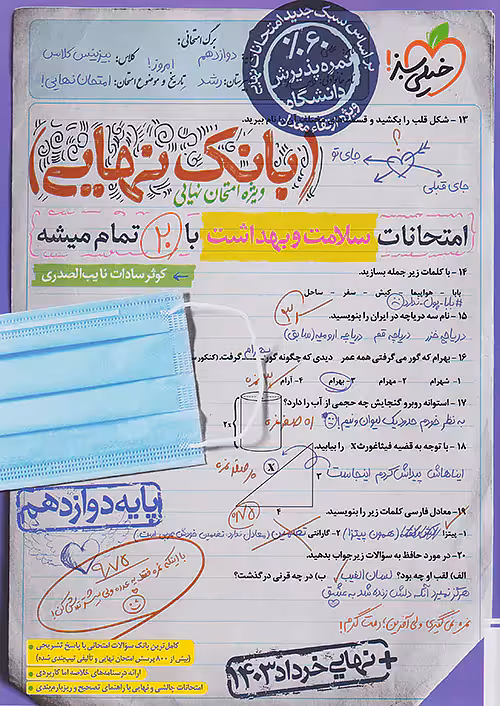 خیلی سبز!
براساس سبک جدید امتحانات نهایی
%۶۰
نمره پذیرش
دانشگاه
برگ امتحانی:
دوازدهم
کلاس: بیزینس کلاس
امروز!
تاریخ و موضوع امتحان: امتحان نهایی!
رشد
۱۳ - شکل قلب را بکشید و
نام ببرید.
؟
جای تو
جای قبلی
(بانک نهایی)
ویژه امتحان نهایی
امتحانات سلامت و بهداشت با ۲۰ تمام میشه
کوثر سادات نایب‌الصدری
۱۴ - با کلمات زیر جمله بسازید.
بابا - هواپیما - کیش - سفر - ساحل
#بابا_پول_ندارد
۱۵ - نام سه دریاچه در ایران را بنویسید.
دریاچه خزر دریاچه قم دریاچه ارومیه (سابق)
۱۶ - بهرام که گور می‌گرفتی همه عمر دیدی که چگونه گور بهرام گرفت. (کنکور
۱- شهرام ۲- مهرام ۳- بهرام ۴- آرام
۱۷ - استوانه روبرو گنجایش چه حجمی از آب را دارد؟
به نظر خودم حدود یک لیوان و نیم!
۲x
۱۸ - با توجه به قضیه فیثاغورث x را بیابید.
ایناهاش پیداش کردم اینجاست
x
۳
۴
۱۹- معادل فارسی کلمات زیر را بنویسید.
۱- پیتزا (همون پیتزا) ۲- گارانتی تضمین (معادل ندارد. تضمین خودش عربی است.)
۲۰- در مورد حافظ به سؤالات زیر جواب بدهید.
الف) لقب او چه بود؟ لسان الغیب ب) در چه قرنی درگذشت؟
هرگز نمیرد آنکه دلش زنده شد به عشق
پایه دوازدهم
۹/۷۵
کامل‌ترین بانک سؤالات امتحانی با پاسخ تشریحی
(بیش از ۸۰۰ پرسش امتحان نهایی و تألیفی تیپ‌بندی شده)
ارائه درسنامه‌های خلاصه اما کاربردی
امتحانات چالشی و نهایی با راهنمای تصحیح و ریزبارم‌بندی
+ نهایی خرداد ۱۴۰۳